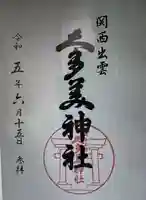 関西出雲
久多美神社
令和五年六月十五日 参拝